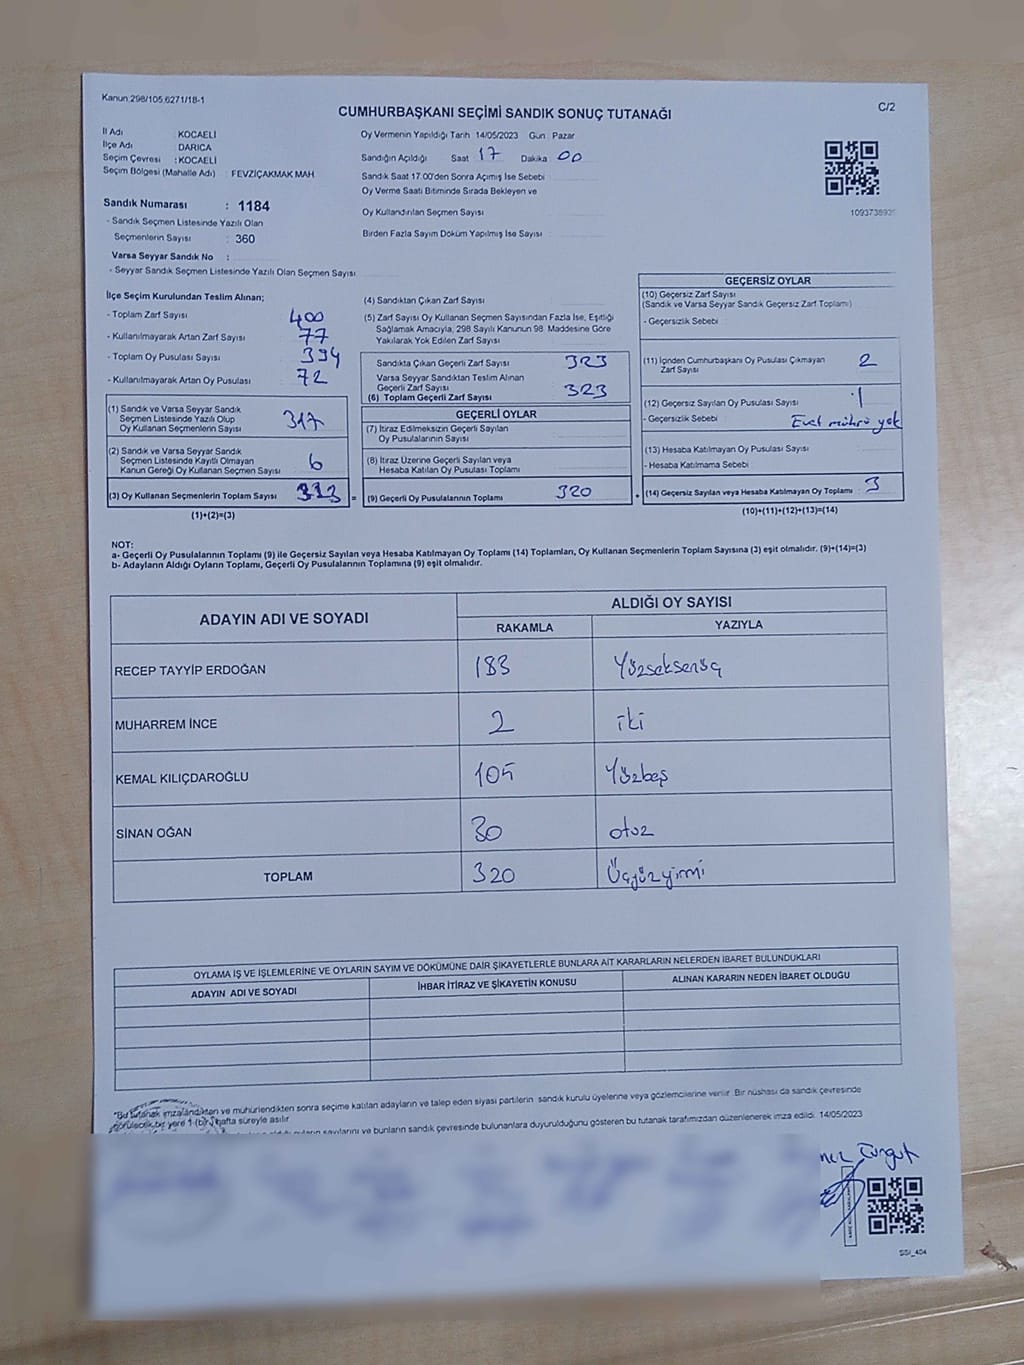 Kanun 298/105,6271/18-1
C/2
CUMHURBAŞKANI SEÇİMİ SANDIK SONUÇ TUTANAĞI
İl Adı : KOCAELİ
İlçe Adı : DARICA
Seçim Çevresi : KOCAELİ
Seçim Bölgesi (Mahalle Adı) : FEVZİÇAKMAK MAH
Oy Vermenin Yapıldığı Tarih 14/05/2023 Gün : Pazar
Sandığın Açıldığı Saat 17 Dakika 00
Sandık Saat 17.00'den Sonra Açımış İse Sebebi
Oy Verme Saati Bitiminde Sırada Bekleyen ve
Oy Kullandırılan Seçmen Sayısı
Birden Fazla Sayım Döküm Yapılmış İse Sayısı
Sandık Numarası : 1184
- Sandık Seçmen Listesinde Yazılı Olan
Seçmenlerin Sayısı : 360
Varsa Seyyar Sandık No :
- Seyyar Sandık Seçmen Listesinde Yazılı Olan Seçmen Sayısı
İlçe Seçim Kurulundan Teslim Alınan;
- Toplam Zarf Sayısı 400
- Kullanılmayarak Artan Zarf Sayısı 77
- Toplam Oy Pusulası Sayısı 394
- Kullanılmayarak Artan Oy Pusulası 72
(1) Sandık ve Varsa Seyyar Sandık
Seçmen Listesinde Yazılı Olup
Oy Kullanan Seçmenlerin Sayısı 317
(2) Sandık ve Varsa Seyyar Sandık
Seçmen Listesinde Kayıtlı Olmayan
Kanun Gereği Oy Kullanan Seçmen Sayısı 6
(3) Oy Kullanan Seçmenlerin Toplam Sayısı =
(1)+(2)=(3)
(4) Sandıktan Çıkan Zarf Sayısı
(5) Zarf Sayısı Oy Kullanan Seçmen Sayısından Fazla İse, Eşitliği
Sağlamak Amacıyla, 298 Sayılı Kanunun 98. Maddesine Göre
Yakılarak Yok Edilen Zarf Sayısı
Sandıkta Çıkan Geçerli Zarf Sayısı 323
Varsa Seyyar Sandıktan Teslim Alınan
Geçerli Zarf Sayısı
(6) Toplam Geçerli Zarf Sayısı 323
GEÇERLİ OYLAR
(7) İtiraz Edilmeksizin Geçerli Sayılan
Oy Pusulalarının Sayısı
(8) İtiraz Üzerine Geçerli Sayılan veya
Hesaba Katılan Oy Pusulası Toplamı
(9) Geçerli Oy Pusulalarının Toplamı 320 +
GEÇERSİZ OYLAR
(10) Geçersiz Zarf Sayısı
(Sandık ve Varsa Seyyar Sandık Geçersiz Zarf Toplamı)
- Geçersizlik Sebebi
(11) İçinden Cumhurbaşkanı Oy Pusulası Çıkmayan
Zarf Sayısı 2
(12) Geçersiz Sayılan Oy Pusulası Sayısı 1
- Geçersizlik Sebebi Evet mührü yok
(13) Hesaba Katılmayan Oy Pusulası Sayısı
- Hesaba Katılmama Sebebi
(14) Geçersiz Sayılan veya Hesaba Katılmayan Oy Toplamı 3
(10)+(11)+(12)+(13)=(14)
NOT:
a- Geçerli Oy Pusulalarının Toplamı (9) ile Geçersiz Sayılan veya Hesaba Katılmayan Oy Toplamı (14) Toplamları, Oy Kullanan Seçmenlerin Toplam Sayısına (3) eşit olmalıdır. (9)+(14)=(3)
b- Adayların Aldığı Oyların Toplamı, Geçerli Oy Pusulalarının Toplamına (9) eşit olmalıdır.
ADAYIN ADI VE SOYADI ALDIĞI OY SAYISI
RAKAMLA YAZIYLA
RECEP TAYYİP ERDOĞAN 183 Yüzseksenüç
MUHARREM İNCE 2 iki
KEMAL KILIÇDAROĞLU 105 Yüzbeş
SİNAN OĞAN 30 otuz
TOPLAM 320 Üçyüzyirmi
OYLAMA İŞ VE İŞLEMLERİNE VE OYLARIN SAYIM VE DÖKÜMÜNE DAİR ŞİKAYETLERLE BUNLARA AİT KARARLARIN NELERDEN İBARET BULUNDUKLARI
ADAYIN ADI VE SOYADI İHBAR İTİRAZ VE ŞİKAYETİN KONUSU ALINAN KARARIN NEDEN İBARET OLDUĞU
"Bu tutanak imzalandıktan ve mühürlendikten sonra seçime katılan adayların ve talep eden siyasi partilerin sandık kurulu üyelerine veya gözlemcilerine verilir. Bir nüshası da sandık çevresinde
görülecek bir yere 1 (bir) hafta süreyle asılır
sayılarını ve bunların sandık çevresinde bulunanlara duyurulduğunu gösteren bu tutanak tarafımızdan düzenlenerek imza edildi. 14/05/2023
Turgut
SSI_404